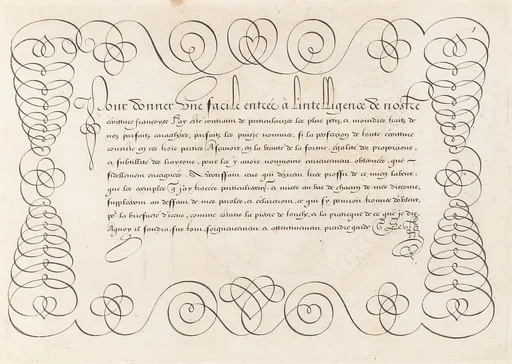 Pour donner vne facile entree à l'intelligence de nostre
escriture françoyse J'ay esté contrainct de particularizer les plus petis, et moindres traits de
noz parfaits caractheres, parfaits les puis-je nommer, si la perfection de toute escriture
consiste en ces trois parties, Asçauoir, en la beauté de la forme, egalité des proportions,
et subtillité des liaysons, pour les y auoir nommoins curieusement obseruées que
fidellement enseignées. Aduertissant ceux qui desirent tirer proffit de ce mien labeur,
que les exemples q j'ay tracées particulierement et mises au bas de chacun de mes discours,
suppleeront au deffaut de mes paroles, et esclarciront ce qui s'y pourroit trouuer d'obscur,
po^r la briefueté d'iceux, comme estans la pierre de touche, et la practicque de ce que je dis,
Aquoy il faudra sur tout soigneusement et attentiuement prendre garde